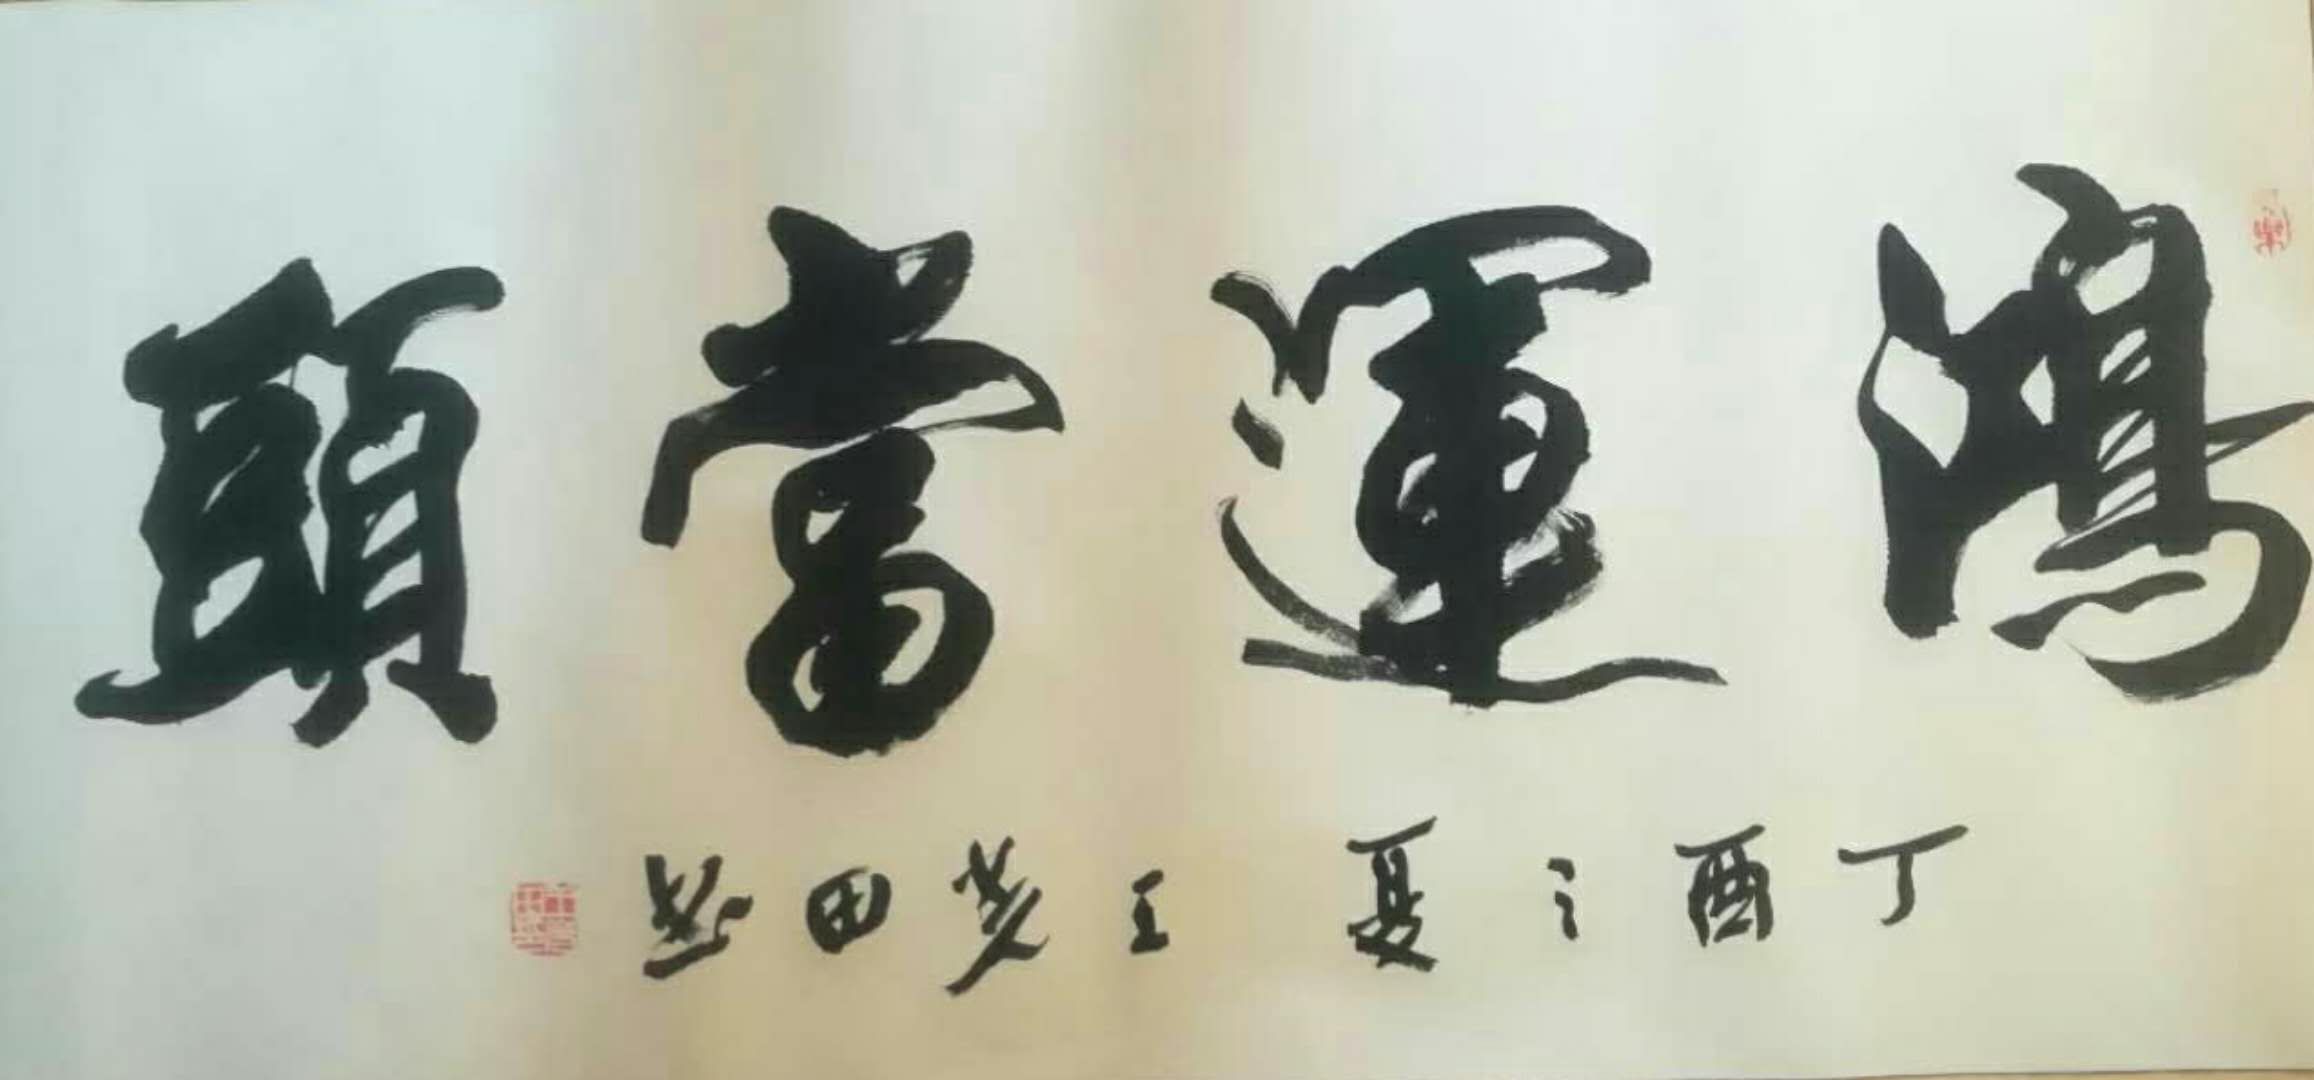 鴻運當頭
丁酉之夏 王 田